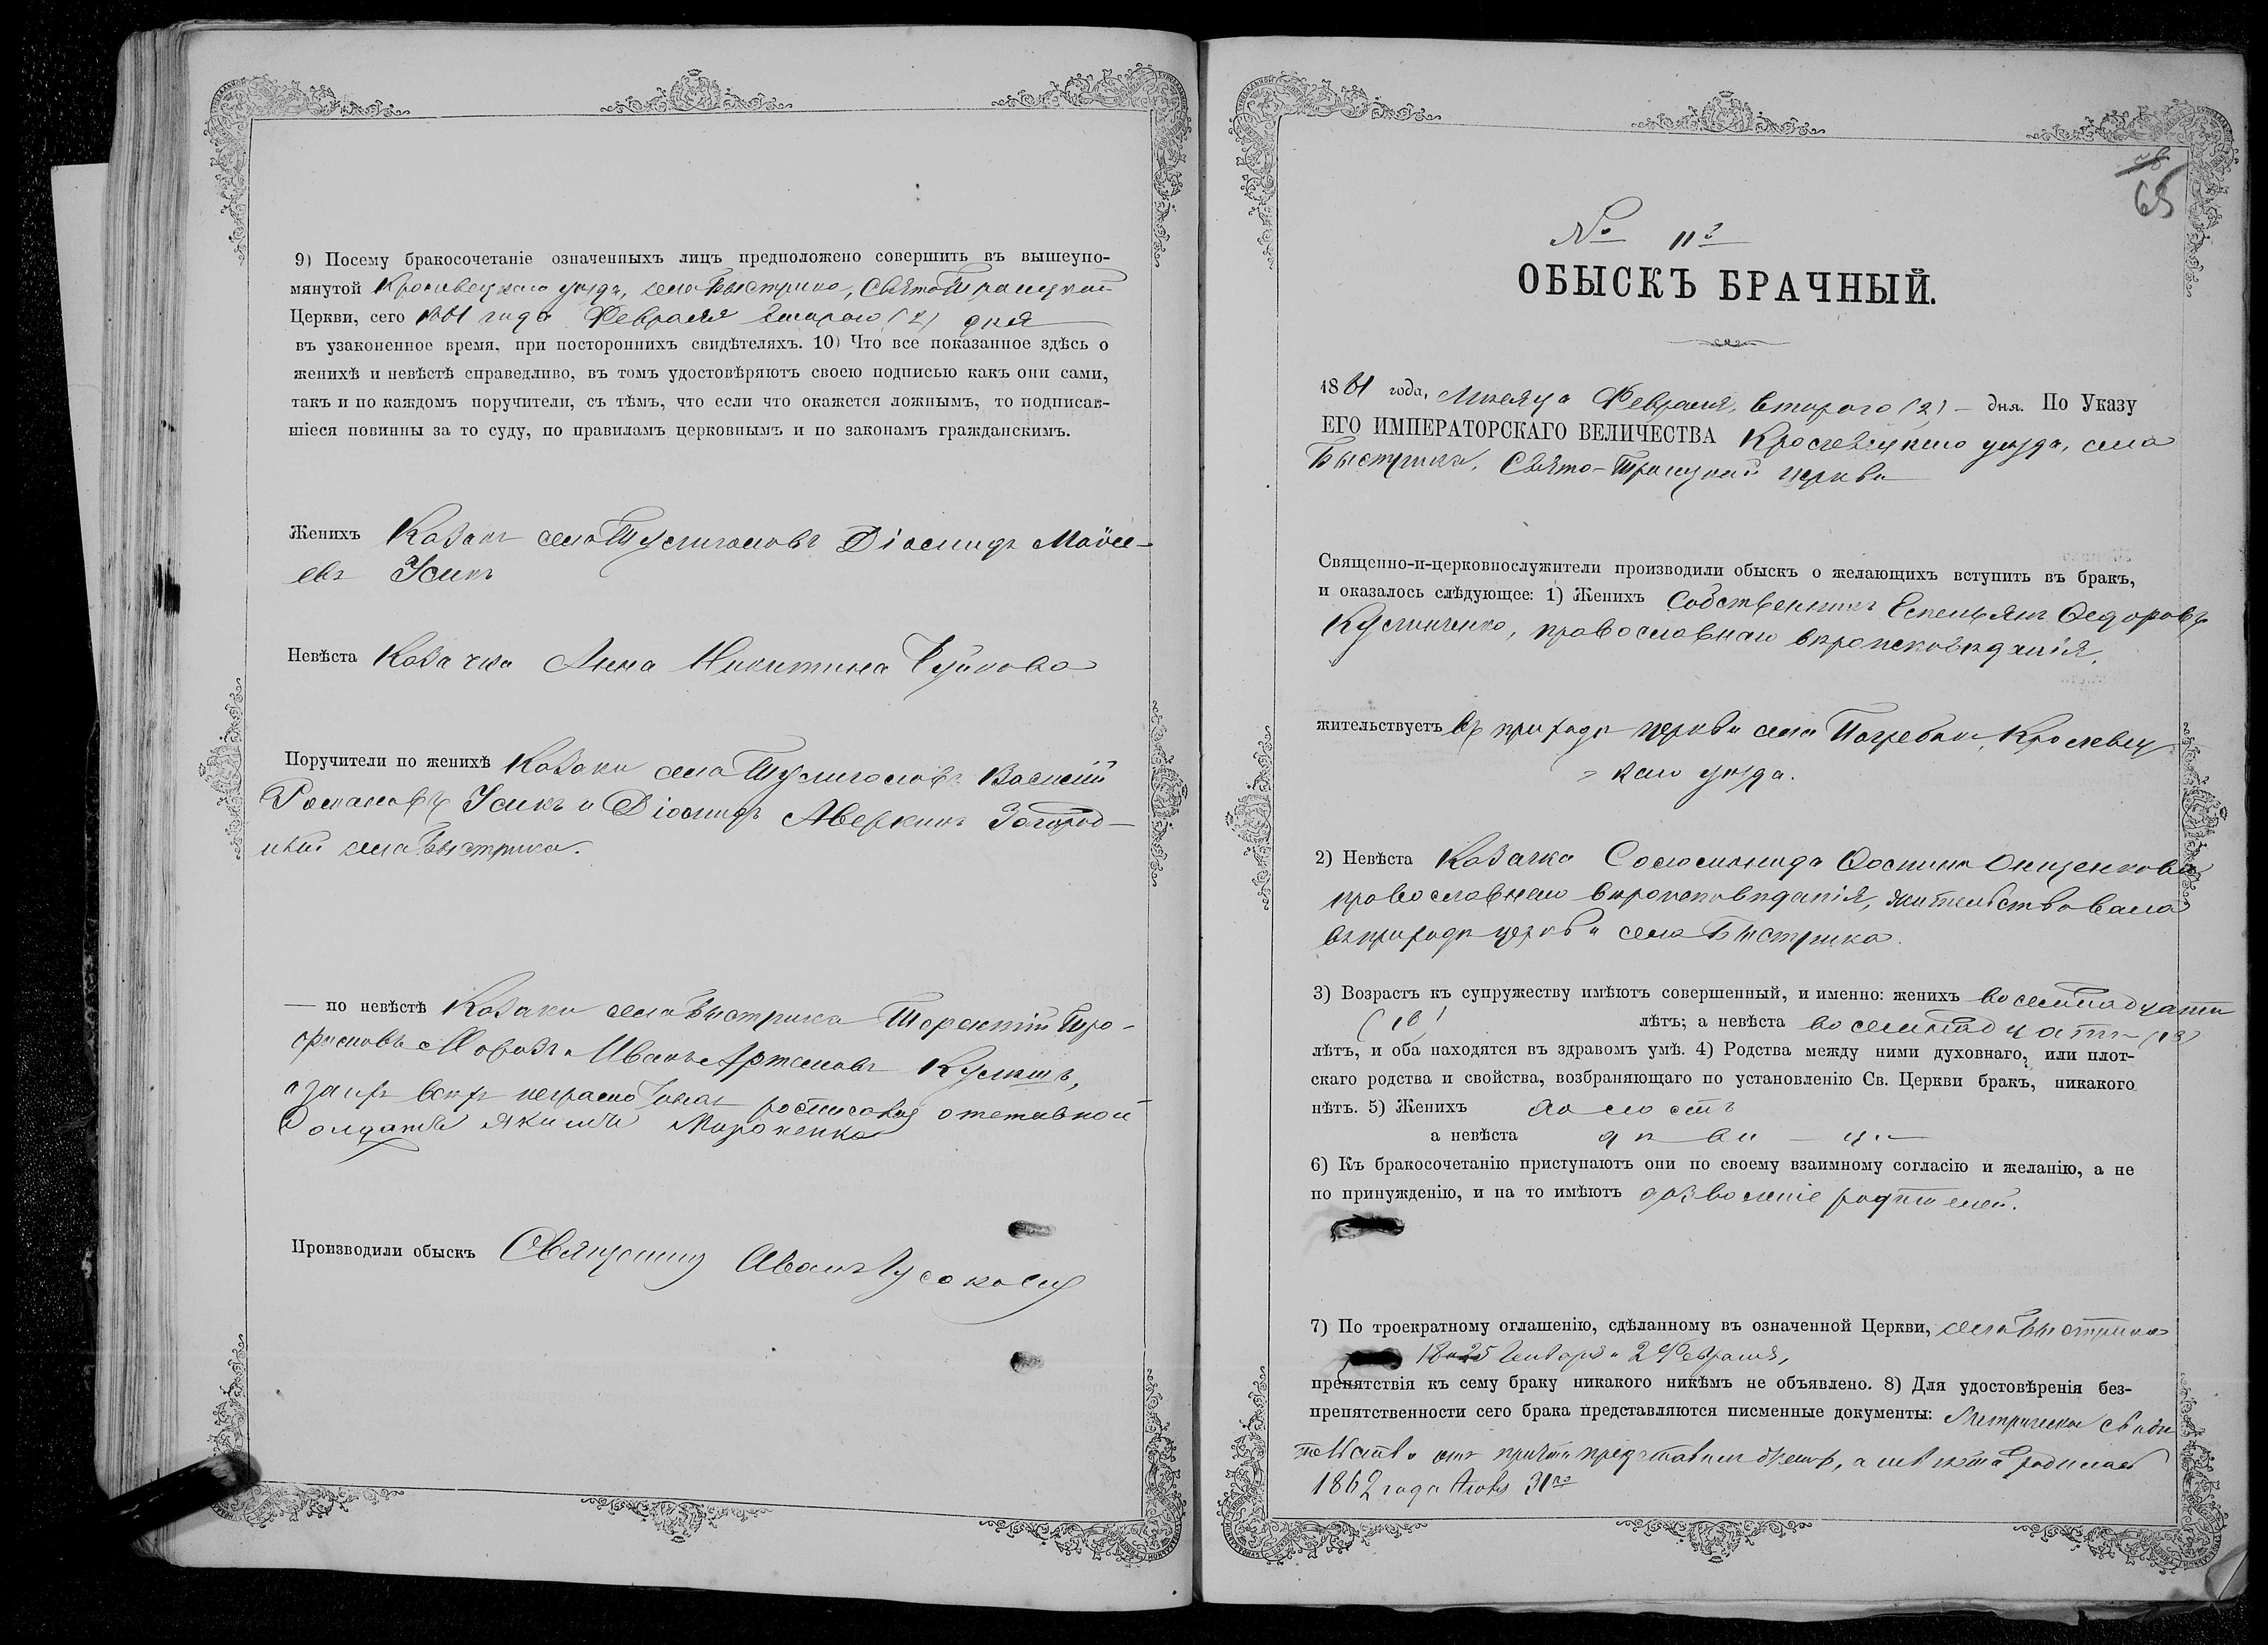 9) Посему бракосочетаніе означенныхъ лицъ предположено совершить въ вышеупо-
мянутой Кролевецкаго уѣзда, села Быстрика, Свято Троицкой
Церкви, сего 1881 года Февраля втораго (2) дня
въ узаконенное время, при постороннихъ свидѣтеляхъ. 10) Что все показанное здѣсь о
женихѣ и невѣстѣ справедливо, въ томъ удостовѣряютъ своею подписью какъ они сами,
такъ и по каждомъ поручители, съ тѣмъ, что если что окажется ложнымъ, то подписав-
шіеся повинны за то суду, по правиламъ церковнымъ и по законамъ гражданскимъ.
Женихъ Козакъ села Тулиголовъ Діомидъ Моѵсе-
евъ Усикъ
Невѣста Козачка Анна Никитина Чуйкова
Поручители по женихѣ Козаки села Тулиголовъ Василій
Романовъ Усикъ и Діомидъ Аверкинъ Загород-
ній села Быстрика.
— по невѣстѣ Козаки села Быстрика Терентій Тро-
фимовъ Морозъ и Иванъ Артемовъ Кулишъ,
а за ихъ всѣхъ неграмотныхъ росписался отставной
Солдатъ Якимъ Мироненко
Производили обыскъ Священникъ Іванъ
65
№ 11й
ОБЫСКЪ БРАЧНЫЙ.
1881 года, Мѣсяца Февраля, втораго (2) – дня. По Указу
ЕГО ИМПЕРАТОРСКАГО ВЕЛИЧЕСТВА Кролевецкаго уѣзда, села
Быстрика, Свято-Троицкой церкви
Священно-и-церковнослужители производили обыскъ о желающихъ вступить въ бракъ,
и оказалось слѣдующее: 1) Женихъ Собственникъ Емельянъ Федоровъ
Кузьменко, православнаго вѣроисповѣданія,
жительствуетъ въ приходѣ церкви села Погребки, Кролевец
= каго уѣзда.
2) Невѣста Козачка Соломонида Фомина Онищенкова
православнаго вѣроисповѣданія, жительствовала
въ приходѣ церкви села Быстрика.
3) Возрастъ къ супружеству имѣютъ совершенный, и именно: женихъ восемнадцати
(18) лѣтъ; а невѣста восемнадцати (18)
лѣтъ, и оба находятся въ здравомъ умѣ. 4) Родства между ними духовнаго, или плот-
скаго родства и свойства, возбраняющаго по установленію Св. Церкви бракъ, никакого
нѣтъ. 5) Женихъ холостъ
а невѣста дѣви – ца
6) Къ бракосочетанію приступаютъ они по своему взаимному согласію и желанію, а не
по принужденію, и на то имѣютъ дозволеніе родителей.
7) По троекратному оглашенію, сдѣланному въ означенной Церкви, села Быстрика
18 25 Генваря и 2 Февраля,
препятствія къ сему браку никакого никѣмъ не объявлено. 8) Для удостовѣренія без-
препятственности сего брака представляются писменные документы: Метрическое свидѣ
тельство отъ причта представлено, а невѣста родилась
1862 года 31го